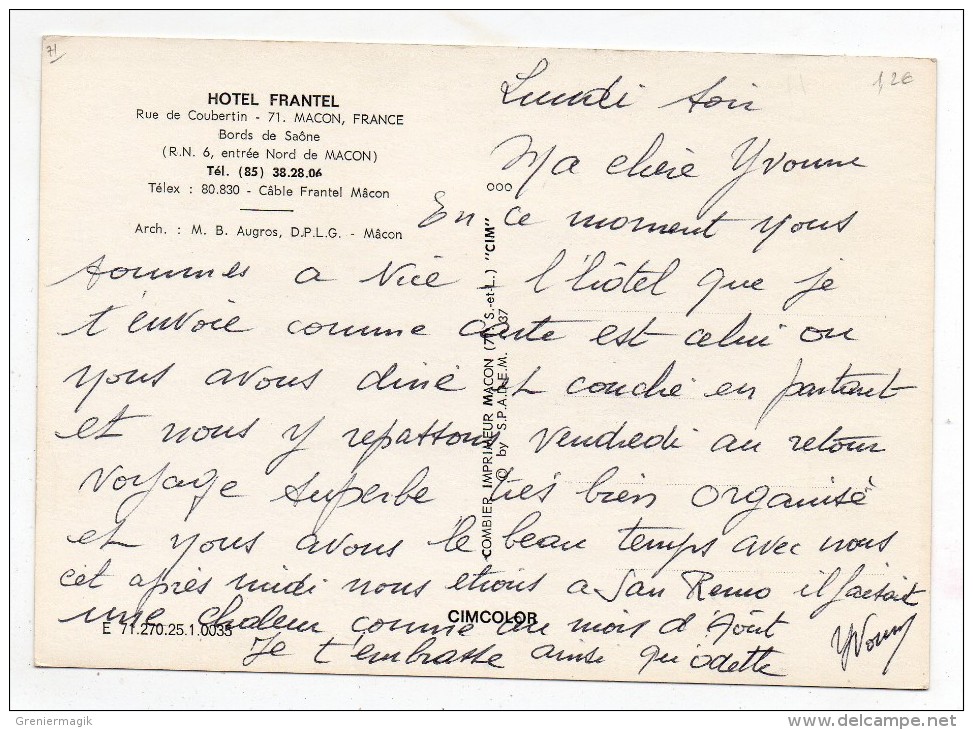 71
1,2€
HOTEL FRANTEL
Rue de Coubertin - 71. MACON, FRANCE
Bords de Saône
(R.N. 6, entrée Nord de MACON)
Tél. (85) 38.28.06
Télex : 80.830 - Câble Frantel Mâcon
Arch. : M. B. Augros, D.P.L.G. - Mâcon
Lundi soir
Ma chère Yvonne
En ce moment nous
sommes a Nice l'hôtel que je
t'envoie comme carte est celui ou
nous avons diné et couché en partant
et nous y repassons vendredi au retour
voyage superbe très bien organisé
et nous avons le beau temps avec nous
cet après midi nous etions a San Remo il faisait
une chaleur comme au mois d'Août
Je t'embrasse ainsi qu'odette
Yvonne
ooo
COMBIER IMPRIMEUR MACON (71 S.-et-L.) "CIM"
© by S.P.A.D.E.M. 37
CIMCOLOR
E 71.270.25.1.0035
Greniermagik
delcampe.net